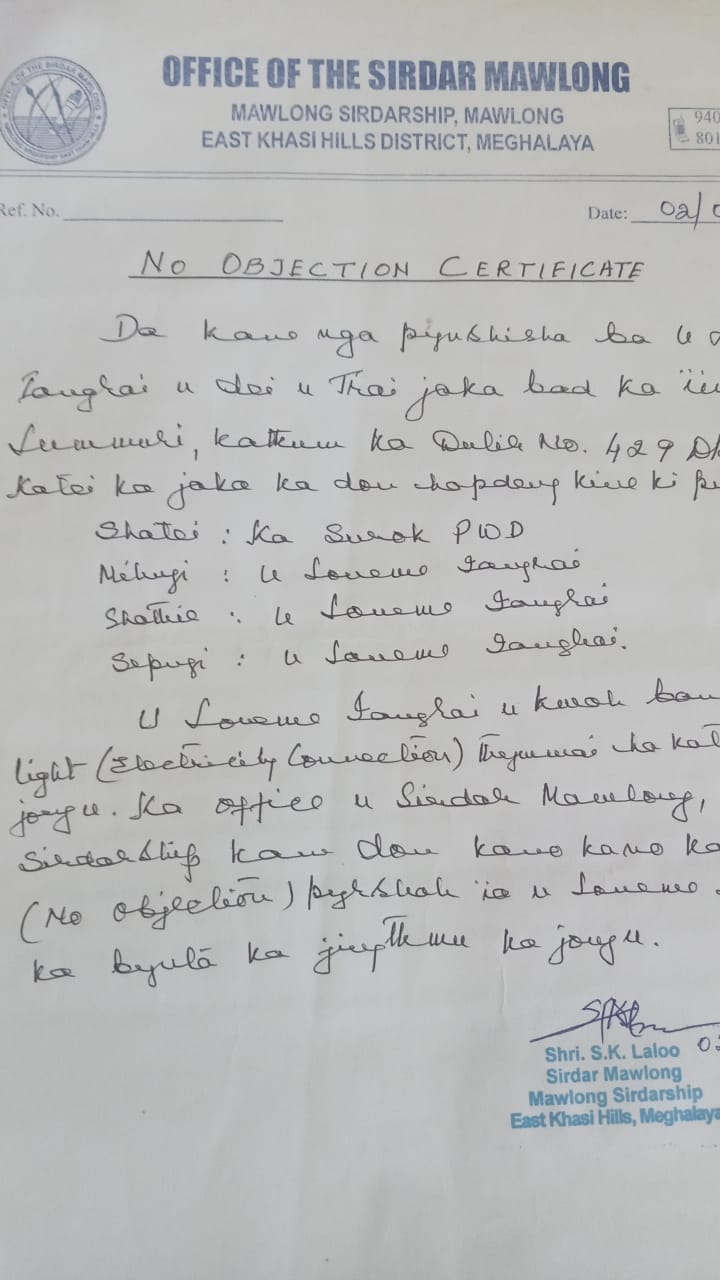 OFFICE OF THE SIRDAR MAWLONG
MAWLONG SIRDARSHIP, MAWLONG
EAST KHASI HILLS DISTRICT, MEGHALAYA
940
801
Ref. No.
Date: 02/0
NO OBJECTION CERTIFICATE
Da kane nga pynshisha ba u
Tanghai u dei u Trai jaka bad ka ïin
kattkum ka Dulir No. 429
Katei ka jaka ka don hapdeng kine ki
Shatei : Ka Surok PWD
Mihngi : U Tanghai
Shathie : U Tanghai
Sepngi : U Tanghai.
U Tanghai u kwah ban
light (Electricity Connection) Thymmai ha kat
jong u. Ka office u Sirdar Mawlong,
Sirdarship kam don kano kano ka
(No Objection) pyrshah ia u
ka bynta ka jingthmu ka jong u.
Shri. S.K. Laloo
Sirdar Mawlong
Mawlong Sirdarship
East Khasi Hills, Meghalaya